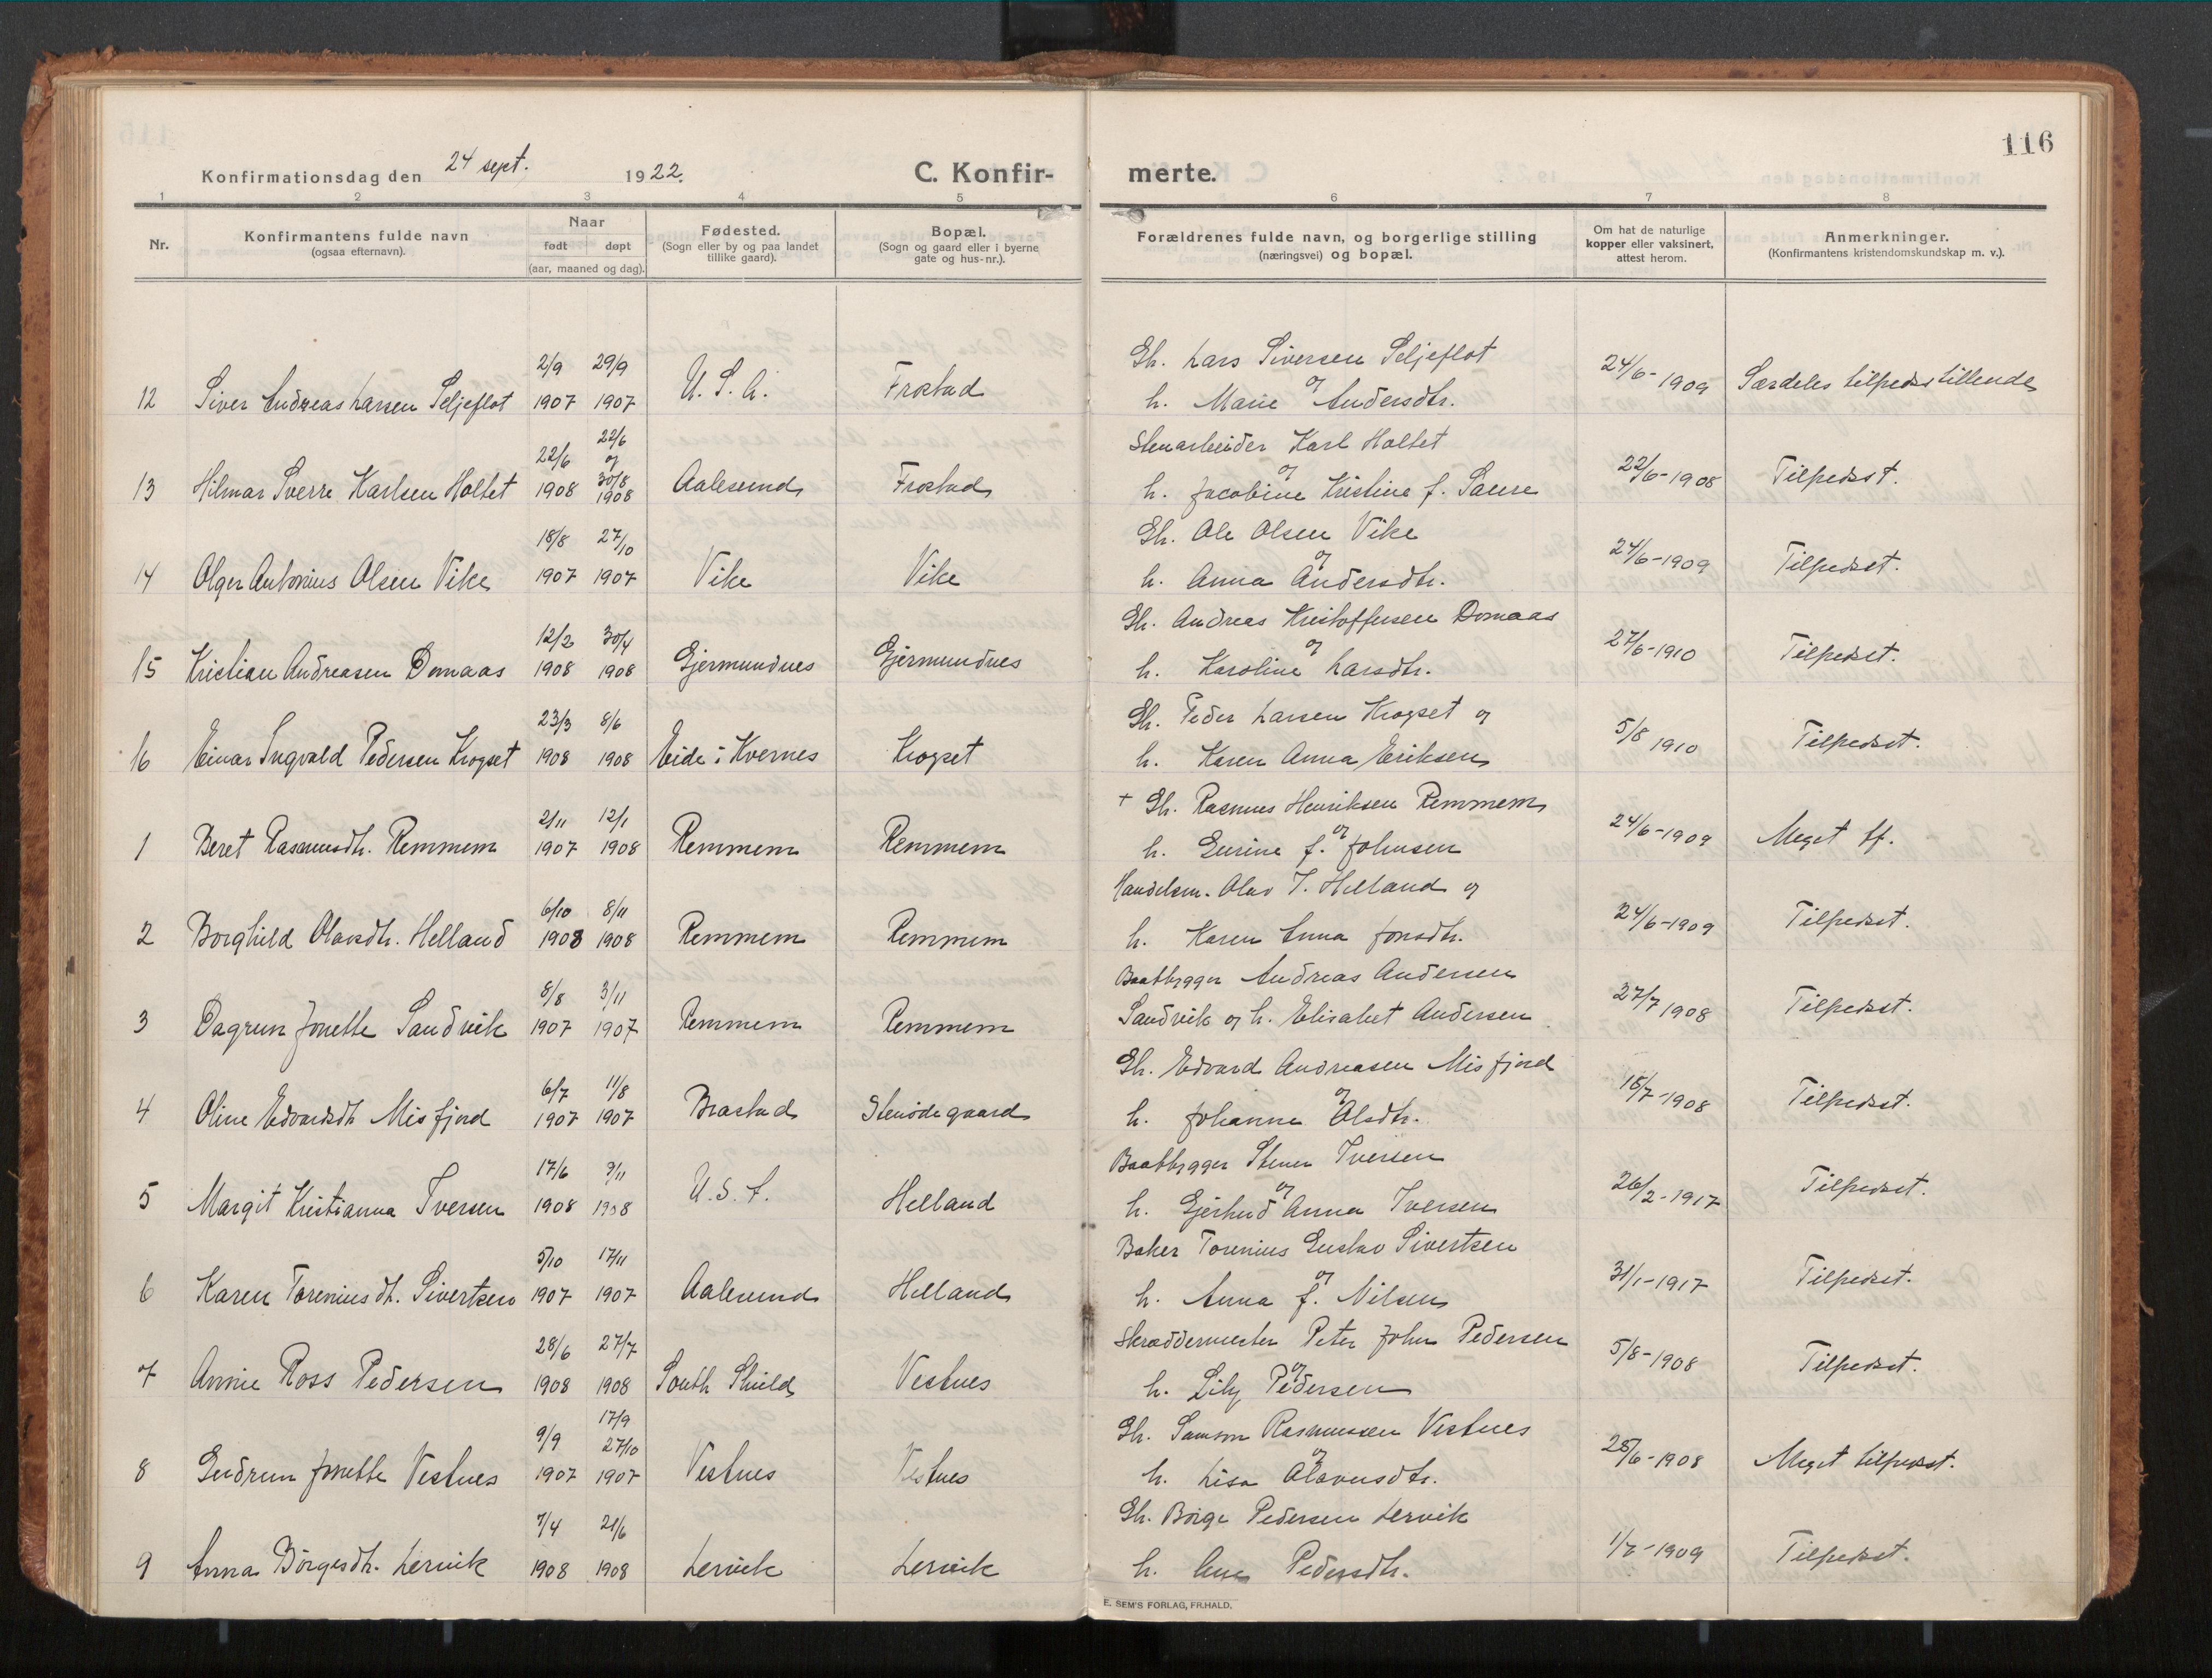 116
Konfirmationsdag den 24 sept. 1922. C. Konfir- merte.
1 2 3 4 5 6 7 8
Nr. Konfirmantens fulde navn (ogsaa efternavn). Naar født døpt (aar, maaned og dag). Fødested. (Sogn eller by og paa landet tillike gaard). Bopæl. (Sogn og gaard eller i byerne gate og hus-nr.). Forældrenes fulde navn, og borgerlige stilling (næringsvei) og bopæl. Om hat de naturlige kopper eller vaksinert, attest herom. Anmerkninger. (Konfirmantens kristendomskundskap m. v.).
2/9 29/9 Gh. Lars Siversen Seljeflot
12 Siver Andreas Larsen Seljeflot 1907 1907 U. S. A. Frostad og h. Marie Andersdtr. 24/6-1909 Særdeles tilfredsstillende
22/6 22/6 og Stenarbeider Karl Holtet
13 Hilmar Sverre Karlsen Holtet 1908 30/8 1908 Aalesund Frostad og h. Jacobine Kristine f. Saure 22/6-1908 Tilfredsst.
18/8 27/10 Gh. Ole Olsen Vike
14 Olger Antonius Olsen Vike 1907 1907 Vike Vike og h. Anna Andersdtr. 24/6-1909 Tilfredsst.
12/2 30/4 Gh. Andreas Kristoffersen Domaas
15 Kristian Andreasen Domaas 1908 1908 Gjermundnes Gjermundnes og h. Karoline Larsdtr. 27/6-1910 Tilfredsst.
23/3 8/6 Gh. Peder Larsen Krogset og
16 Einar Ingvald Pedersen Krogset 1908 1908 Eide i Kvernes Krogset h. Karen Anna Eriksen 5/8 1910 Tilfredsst.
2/11 12/1 + Gh. Rasmus Henriksen Remmem
1 Beret Rasmusdtr. Remmem 1907 1908 Remmem Remmem og h. Gurine f. Johnsen 24/6-1909 Meget tf.
6/10 8/11 Handelsm. Olav J. Helland og
2 Borghild Olavsdtr. Helland 1908 1908 Remmem Remmem h. Karen Anna Jonsdtr. 24/6-1909 Tilfredsst.
8/8 3/11 Baatbygger Andreas Andersen
3 Dagrun Jonette Sandvik 1907 1907 Remmem Remmem Sandvik og h. Elisabet Andersen 27/7 1908 Tilfredsst.
6/7 11/8 Gh. Edvard Andreasen Misfjord
4 Oline Edvardsdtr Misfjord 1907 1907 Brastad Stenødegaard og h. Johanne Olsdtr. 18/7-1908 Tilfredsst.
17/6 9/11 Baatbygger Stener Iversen
5 Margit Kristianna Iversen 1908 1908 U. S. A. Helland og h. Gjertrud Anna Iversen 26/2-1917 Tilfredsst.
5/10 17/11 Baker Torenius Gustav Sivertsen
6 Karen Toreniusdtr. Sivertsen 1907 1907 Aalesund Helland og h. Anna f. Nilsen 31/1-1917 Tilfredsst.
28/6 27/7 Skræddermester Peter John Pedersen
7 Annie Ross Pedersen 1908 1908 South Shield Vestnes og h. Lily Pedersen 5/8-1908 Tilfredsst.
9/9 17/9 27/10 Gh. Samson Rasmussen Vestnes
8 Gudrun Jonette Vestnes 1907 1907 Vestnes Vestnes og h. Lisa Olavusdtr. 25/6-1908 Meget tilfredsst.
7/4 21/6 Gh. Børge Pedersen Lervik
9 Anna Børgesdtr. Lervik 1908 1908 Lervik Lervik h. Ane Pedersdtr. 1/7-1909 Tilfredsst.
E. SEM'S FORLAG, FR.HALD.